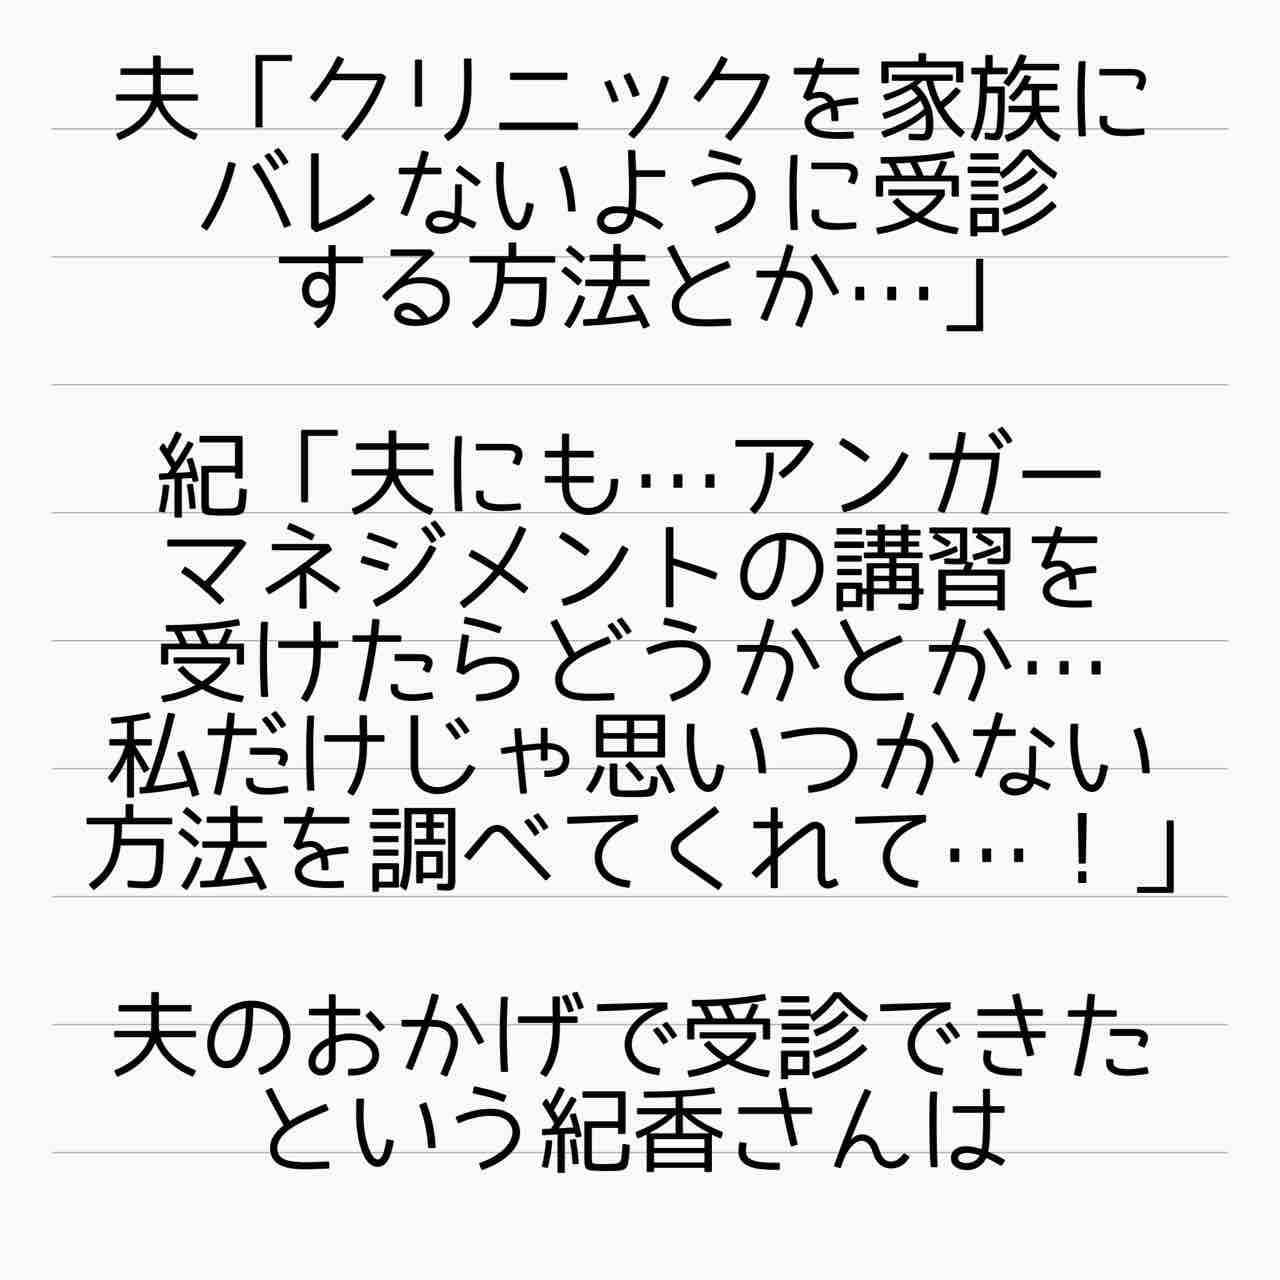 夫「クリニックを家族に
バレないように受診
する方法とか…」
紀「夫にも…アンガー
マネジメントの講習を
受けたらどうかとか…
私だけじゃ思いつかない
方法を調べてくれて…！」
夫のおかげで受診できた
という紀香さんは